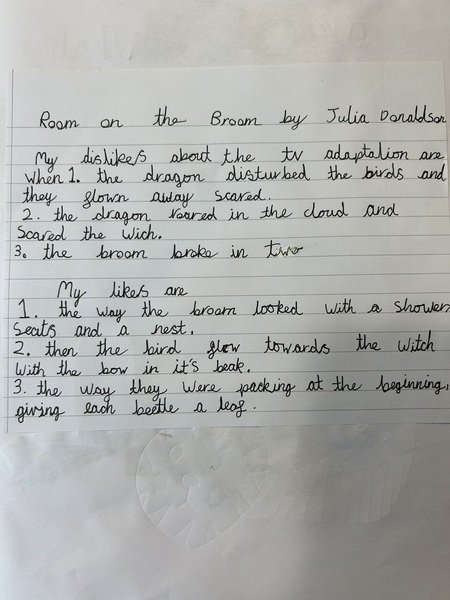 Room on the Broom by Julia Donaldson
My dislikes about the tv adaptation are
when 1. the dragon disturbed the birds and
they flown away scared.
2. the dragon roared in the cloud and
scared the wich.
3. the broom broke in two
My likes are
1. the way the broom looked with a shower
seats and a nest.
2. then the bird glew towards the witch
with the bow in it's beak.
3. the way they were packing at the beginning,
giving each beetle a leaf.